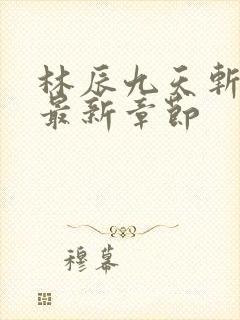 林辰九天斩
最新章节
穆幕